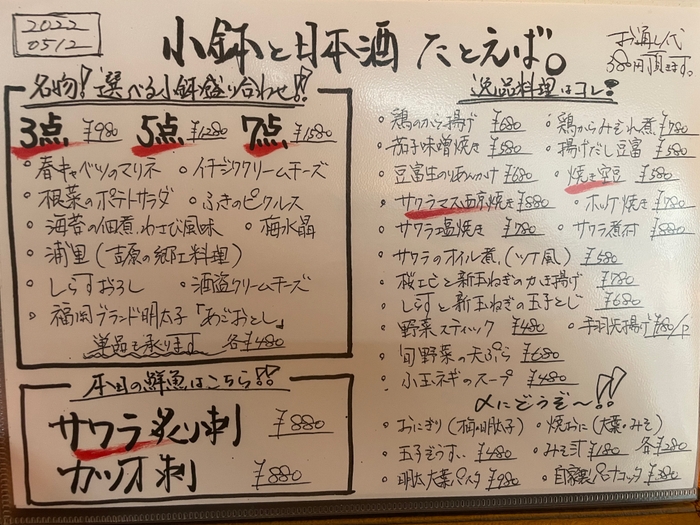 2022
0512
小鉢と日本酒 たとえば。
お通し代
380円頂きます。
名物!選べる小鉢盛り合わせ!!
3点 ¥980 5点 ¥1280 7点 ¥1580
・春キャベツのマリネ ・イチジククリームチーズ
・根菜のポテトサラダ ・ふきのピクルス
・海苔の佃煮、わさび風味 ・梅水晶
・浦里(吉原の郷土料理)
・しらすおろし ・酒盗クリームチーズ
・福岡ブランド明太子「あごおとし」
単品も承ります 各¥480
本日の鮮魚はこちら!!
サワラ炙り刺 ¥880
カツオ刺 ¥880
逸品料理はコレ!
・鶏のから揚げ ¥680 ・鶏からみぞれ煮 ¥780
・茄子味噌焼き ¥580 ・揚げだし豆富 ¥580
・豆富生のりあんかけ ¥680 ・焼き空豆 ¥580
・サクラマス西京焼き ¥880 ・ホッケ焼き ¥780
・サワラ塩焼き ¥780 ・サワラ煮付 ¥880
・サワラのオイル煮(ツナ風) ¥580
・桜エビと新玉ねぎのかき揚げ ¥780
・しらすと新玉ねぎの玉子とじ ¥680
・野菜スティック ¥480 ・手羽先揚げ ¥180/P
・旬野菜の天ぷら ¥680
・小玉ネギのスープ ¥480
〆にどうぞ〜!!
・おにぎり(梅・明太子) ・焼おに(大葉・みそ)
・玉子ぞうすい ¥480 ・みそ汁 ¥180 各¥280
・明太大葉パスタ ¥980 ・自家製パンナコッタ ¥380